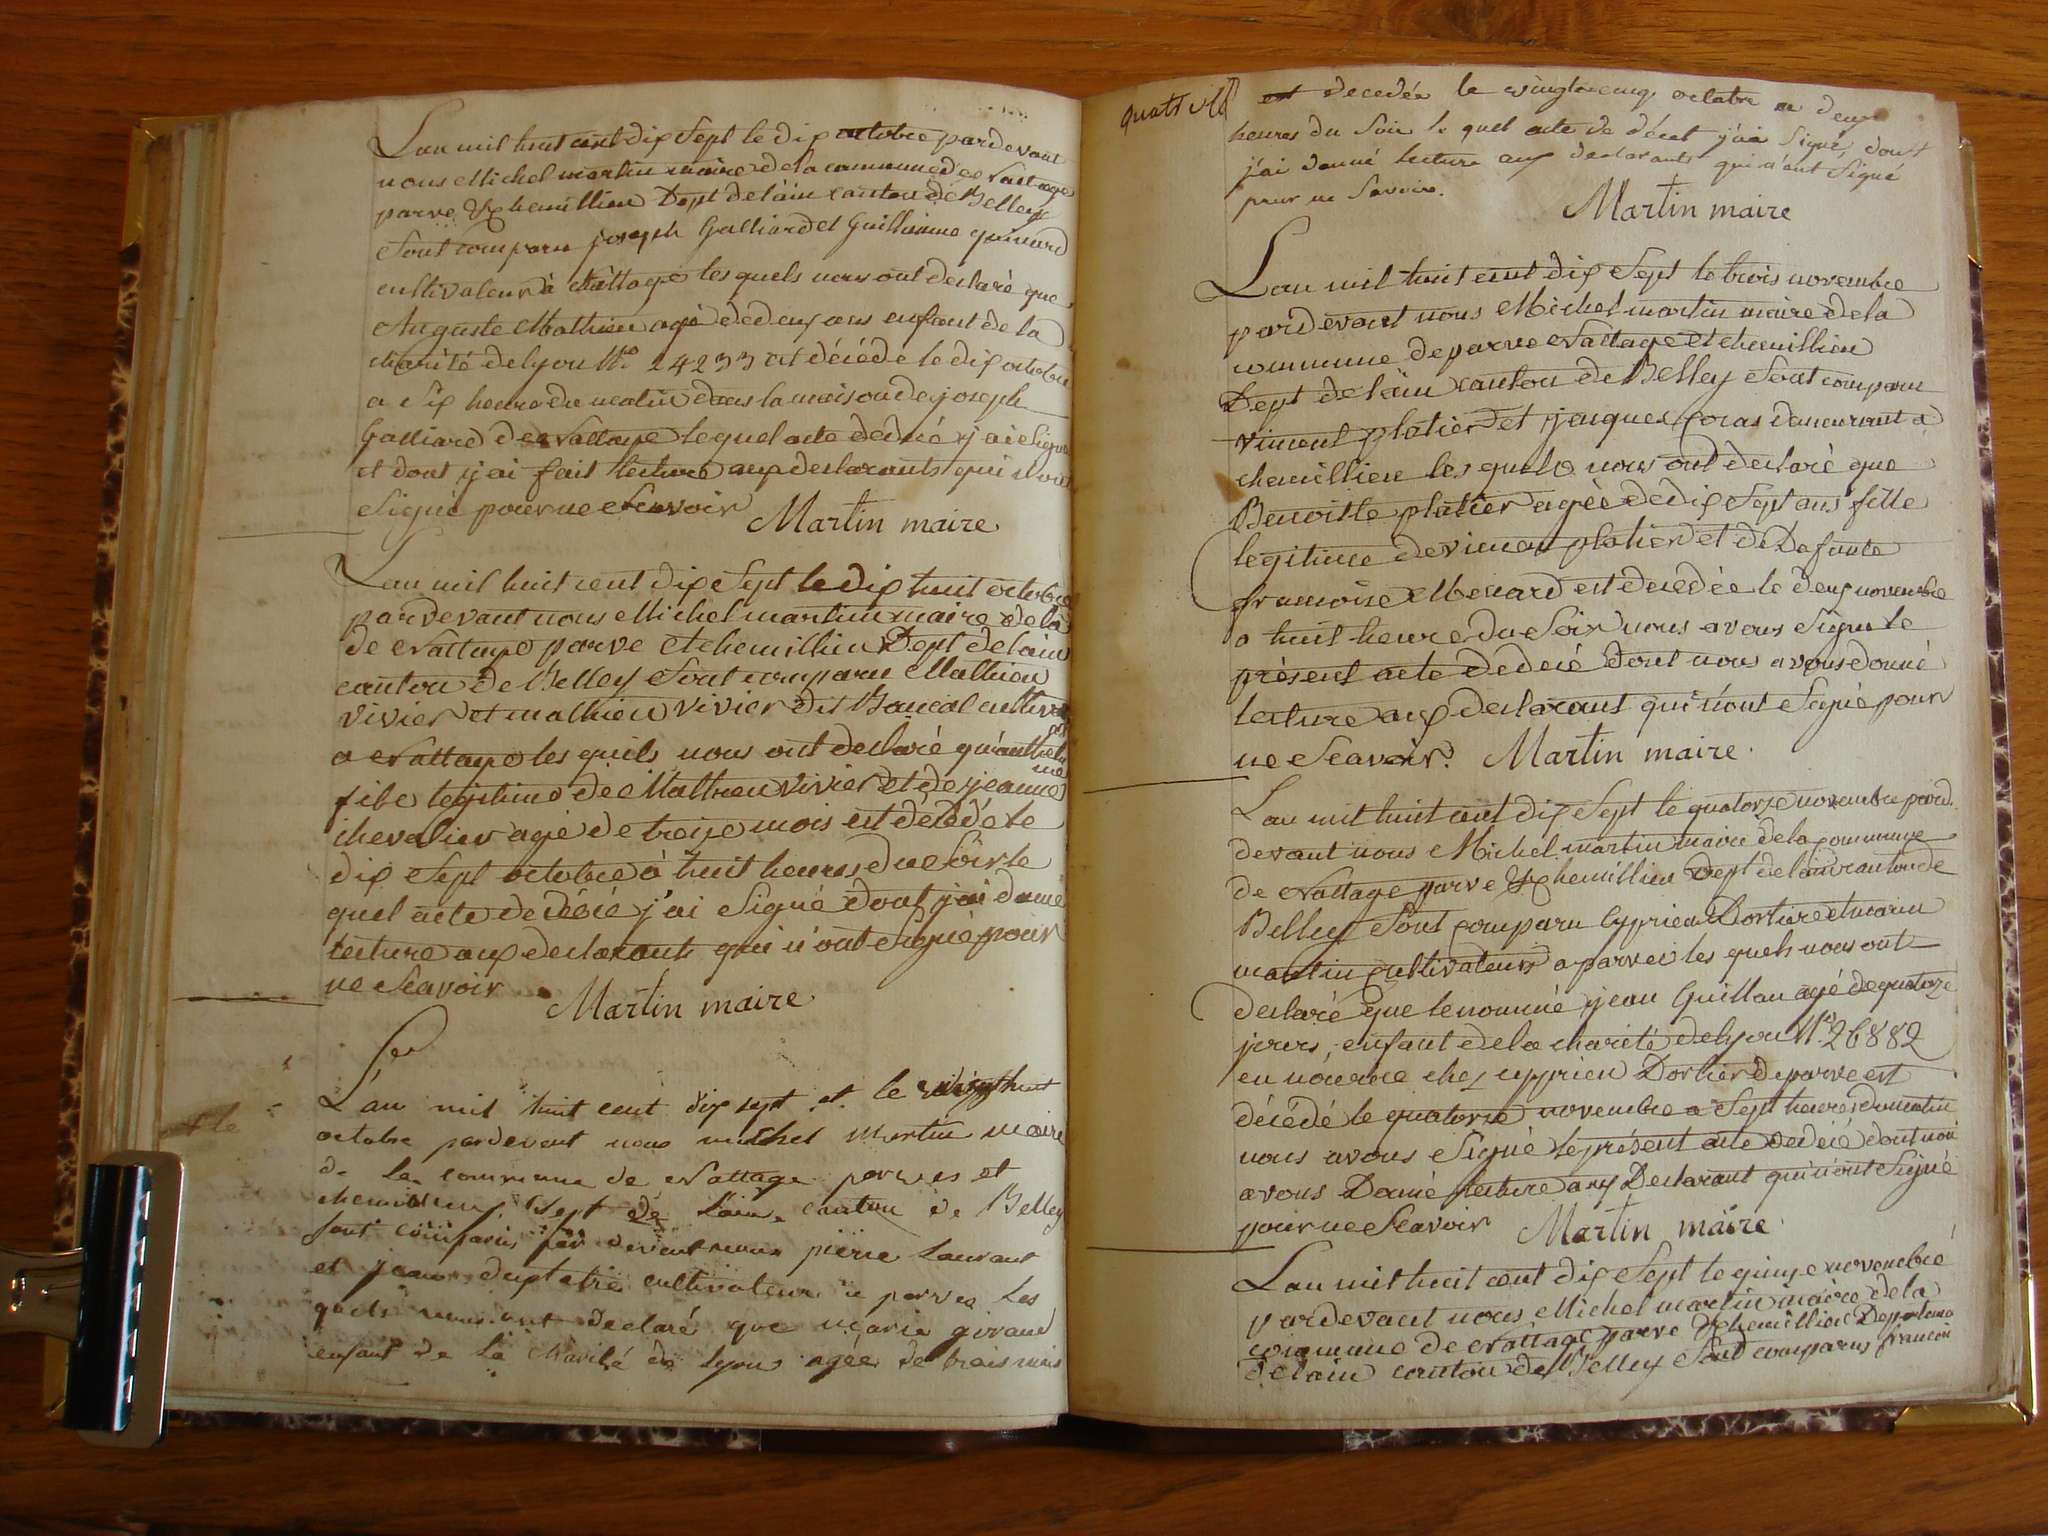 Lan mil huit cent dix Sept le dix octobre pardevant
nous Michel martin maire de la commune de Nattage
parve & chemillieu Dept de lain canton de Belley
Sont comparu joseph Galliard et Guillaume
cultivateur à Nattage les quels nous ont déclaré que
Auguste Mathieu agé de deux ans enfant de la
charité de lyon No 24233 est décédé le dix octobre
a Six heure du matin dans la maison de joseph
Galliard de Nattage lequel acte de décé j'ai Signé
et dont j'ai fait lecture aux declarants qui n'ont
Signé pour ne Scavoir Martin maire
Lan mil huit cent dix Sept le dix huit octobre
pardevant nous Michel martin maire de la
de Nattage parve et chemillieu Dept de lain
canton de Belley Sont comparu Mathieu
vivier et mathieu vivier dit
a Nattage les quels nous ont declaré
fils legitime de Mathieu vivier et de jeanne
chevalier agé de treize mois est décédé le
dix Sept octobre à huit heures du Soir le
quel acte de décé j'ai Signé dont j'ai donné
lecture aux declarants qui n'ont Signé pour
ne Scavoir Martin maire
L'an mil huit cent dix sept et le vingt huit
octobre pardevant nous michel martin maire
de la commune de Nattage parves et
chemillieu Dept de L'ain canton de Belley
sont comparus par devant nous pierre Laurant
et jean cultivateur a parves les
quels nous ont declaré que marie giraud
enfant de la charité de lyon agée de trois mois
est decedée le vingt cinq octobre a deux
heures du Soir le quel acte de décet j'ai Signé, dont
j'ai donné lecture aux declarants qui n'ont Signé
pour ne Savoir. Martin maire
Lan mil huit cent dix Sept le trois novembre
pardevant nous Michel martin maire de la
commune de parve Nattage et chemillieu
Dept de lain canton de Belley Sont comparu
vincent platier et jacques coras demeurant a
chemillieu les quels nous ont déclaré que
Benoitte platier agée de dix Sept ans fille
legitime de vincent platier et de Defunte
francoise Menard est décédée le deux novembre
a huit heure du Soir nous avons Signé le
présent acte de décé dont nous avons donné
lecture aux declarant qui n'ont Signé pour
ne Scavoir. Martin maire.
Lan mil huit cent dix Sept le quatorze novembre pard.
devant nous Michel martin maire de la commune
de Nattage parve & chemillieu Dept de lain canton de
Belley Sont comparu Cyprien Dortier et marin
martin cultivateurs a parve les quels nous ont
declaré que le nommé jean Guillau agé de quatorze
jours, enfant de la charité de lyon No 26882
en nource chez cyprien Dortier de parve est
décédé le quatorze novembre a Sept heures du matin
nous avons Signé le présent acte de décé dont nous
avons Donné lecture aux Declarant qui n'ont Signé
pour ne Scavoir Martin maire.
Lan mil huit cent dix Sept le quinze novembre
pardevant nous Michel martin maire de la
commune de Nattage parve & chemillieu
de lain canton de Belley Sont comparus francois